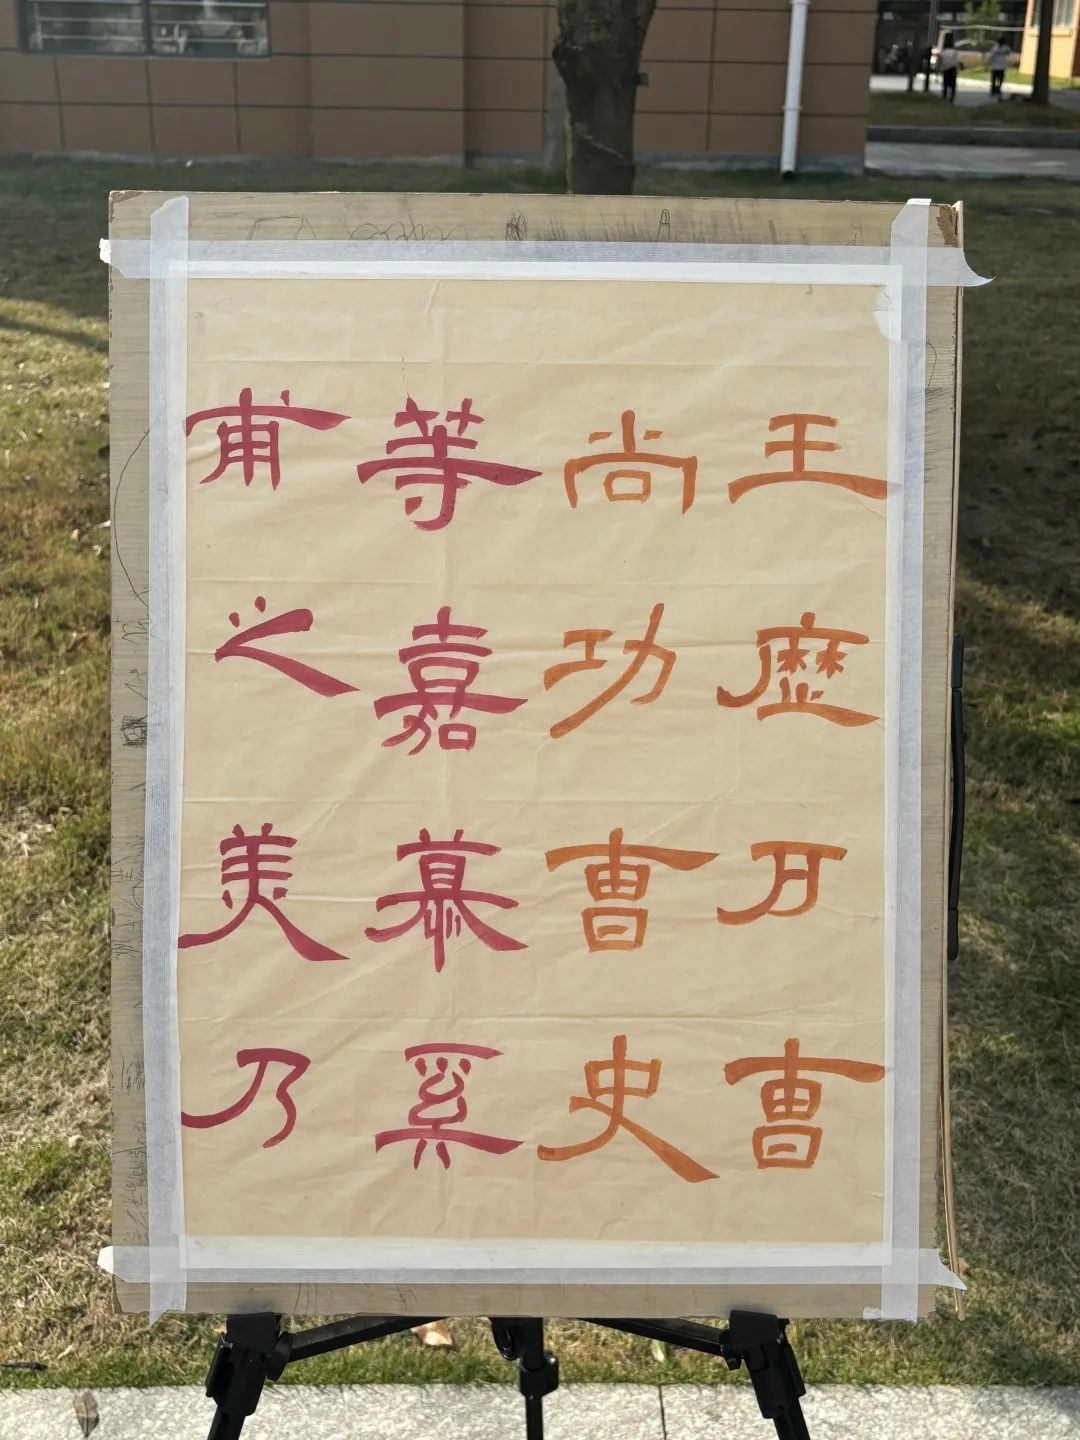 王歷戶曹
尚功曹史
等嘉慕奚
甫之美乃